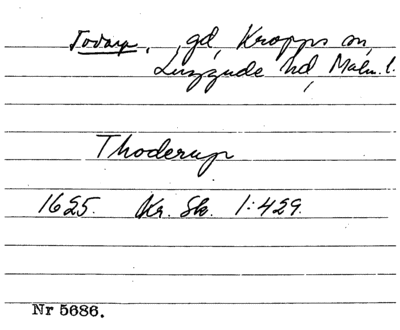 Todarp, gd, Kropps sn,
Luggude hd, Malm. l.
Thoderup
1625. Kr. Sk. 1:429.
Nr 5686.